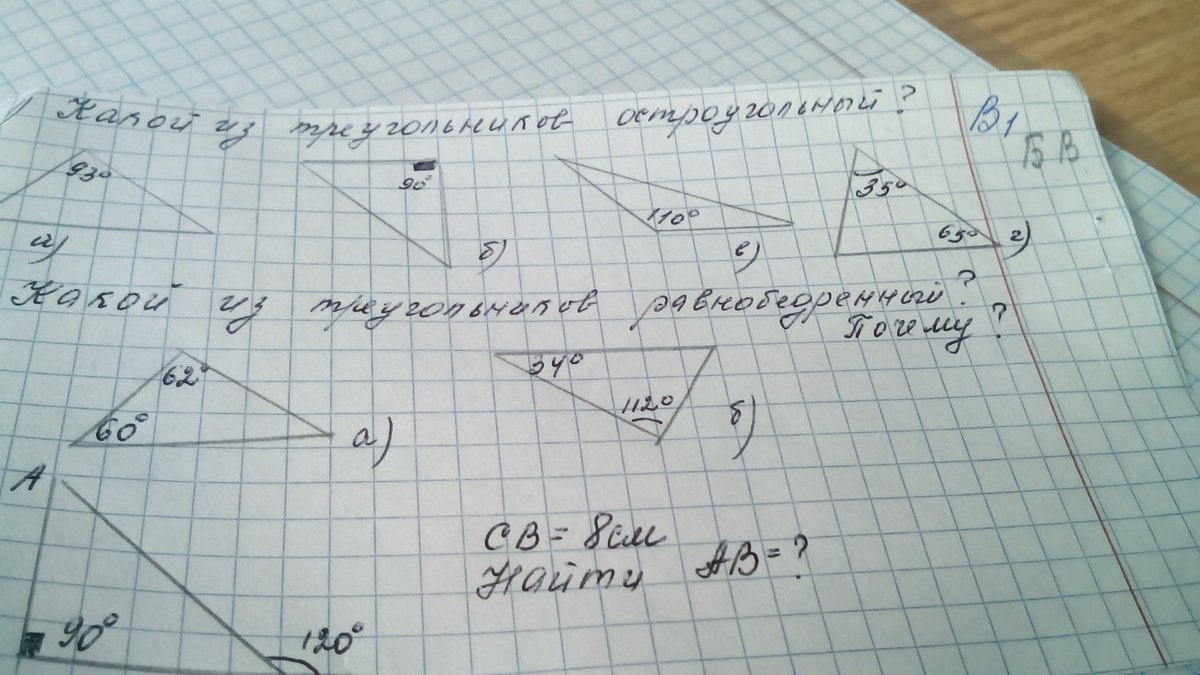 Какой из треугольников остроугольный?
В1
Б В
93°
90°
110°
35°
65°
а)
б)
в)
г)
Какой из треугольников равнобедренный?
Почему?
62°
60°
а)
34°
112°
б)
А
СВ = 8см
Найти АВ = ?
90°
120°